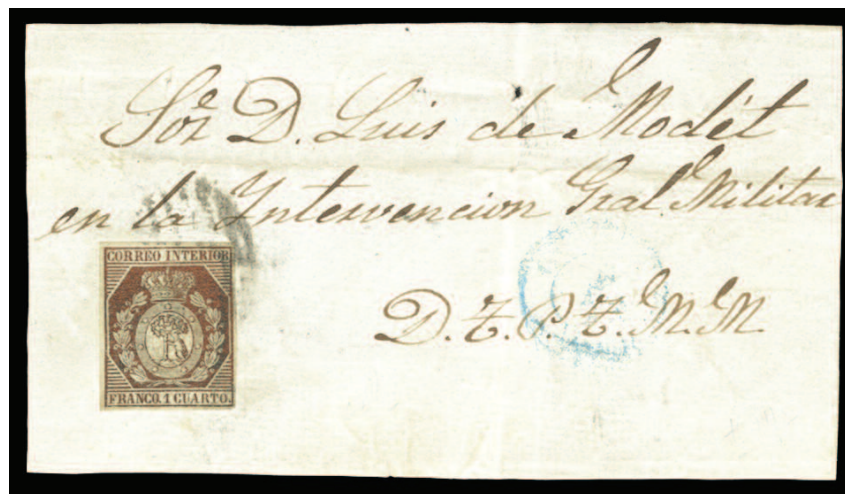 Sor D. Luis de Modét
en la Intervencion Gral Militar
CORREO INTERIOR
FRANCO. 1 CUARTO.
D. Z. P. Z. M. M.